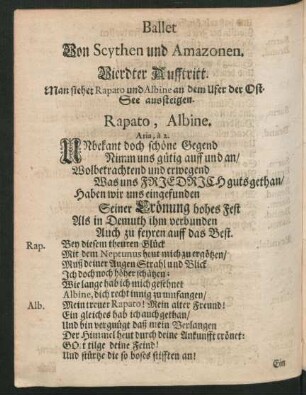 Ballet
Von Scythen und Amazonen.
Vierdter Aufftritt.
Man siehet Rapato und Albine an dem Ufer der Ost-
See aussteigen.
Rapato, Albine.
Aria, à 2.
UNbekant doch schöne Gegend
Nimm uns gütig auff und an/
Wolbetrachtend und erwegend
Was uns FRIEDRICH guts gethan/
Haben wir uns eingefunden
Seiner Crönung hohes Fest
Als in Demuth ihm verbunden
Auch zu feyren auff das Best.
Rap. Bey diesem theuren Glück
Mit dem Neptunus heut mich zu ergötzen/
Muß deiner Augen Strahl und Blick
Ich doch noch höher schätzen:
Wie lange hab ich mich gesehnet
Albine, dich recht innig zu umfangen/
Alb. Mein treuer Rapato! Mein alter Freund!
Ein gleiches hab ich auch gethan/
Und bin vergnügt daß mein Verlangen
Der Himmel heut durch deine Ankunfft crönet:
GOtt tilge deine Feind!
Und stürtze die so böses stifften an!
Ein